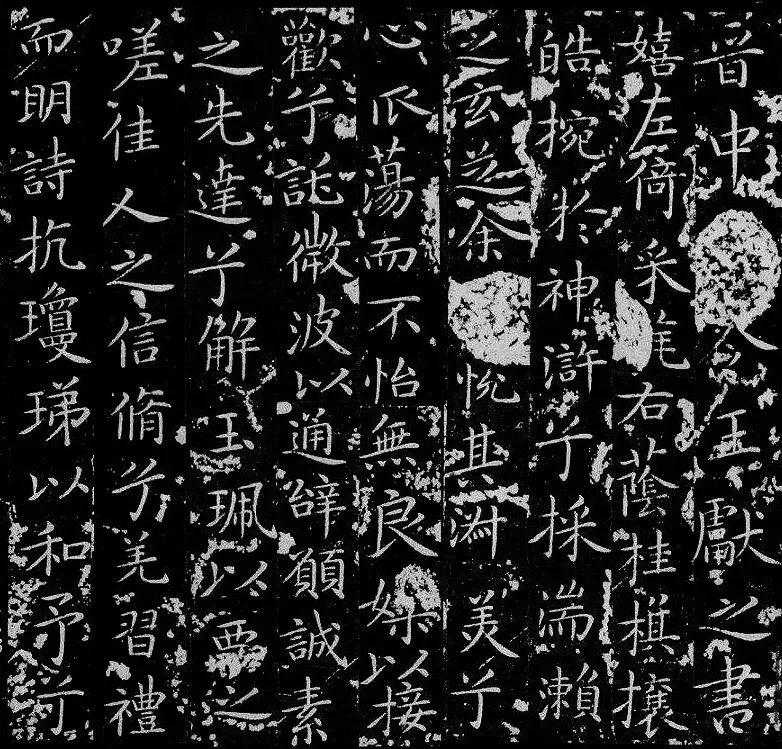 晉中令王獻之書
嬉左倚采旄右蔭桂旗攘
皓捥於神滸兮採湍瀨
之玄芝余悅其淑美兮
心蕩而不怡無良媒以接
歡兮託微波以通辭願誠素
之先達兮解玉珮以要之
嗟佳人之信脩兮羌習禮
而明詩抗瓊珶以和予兮